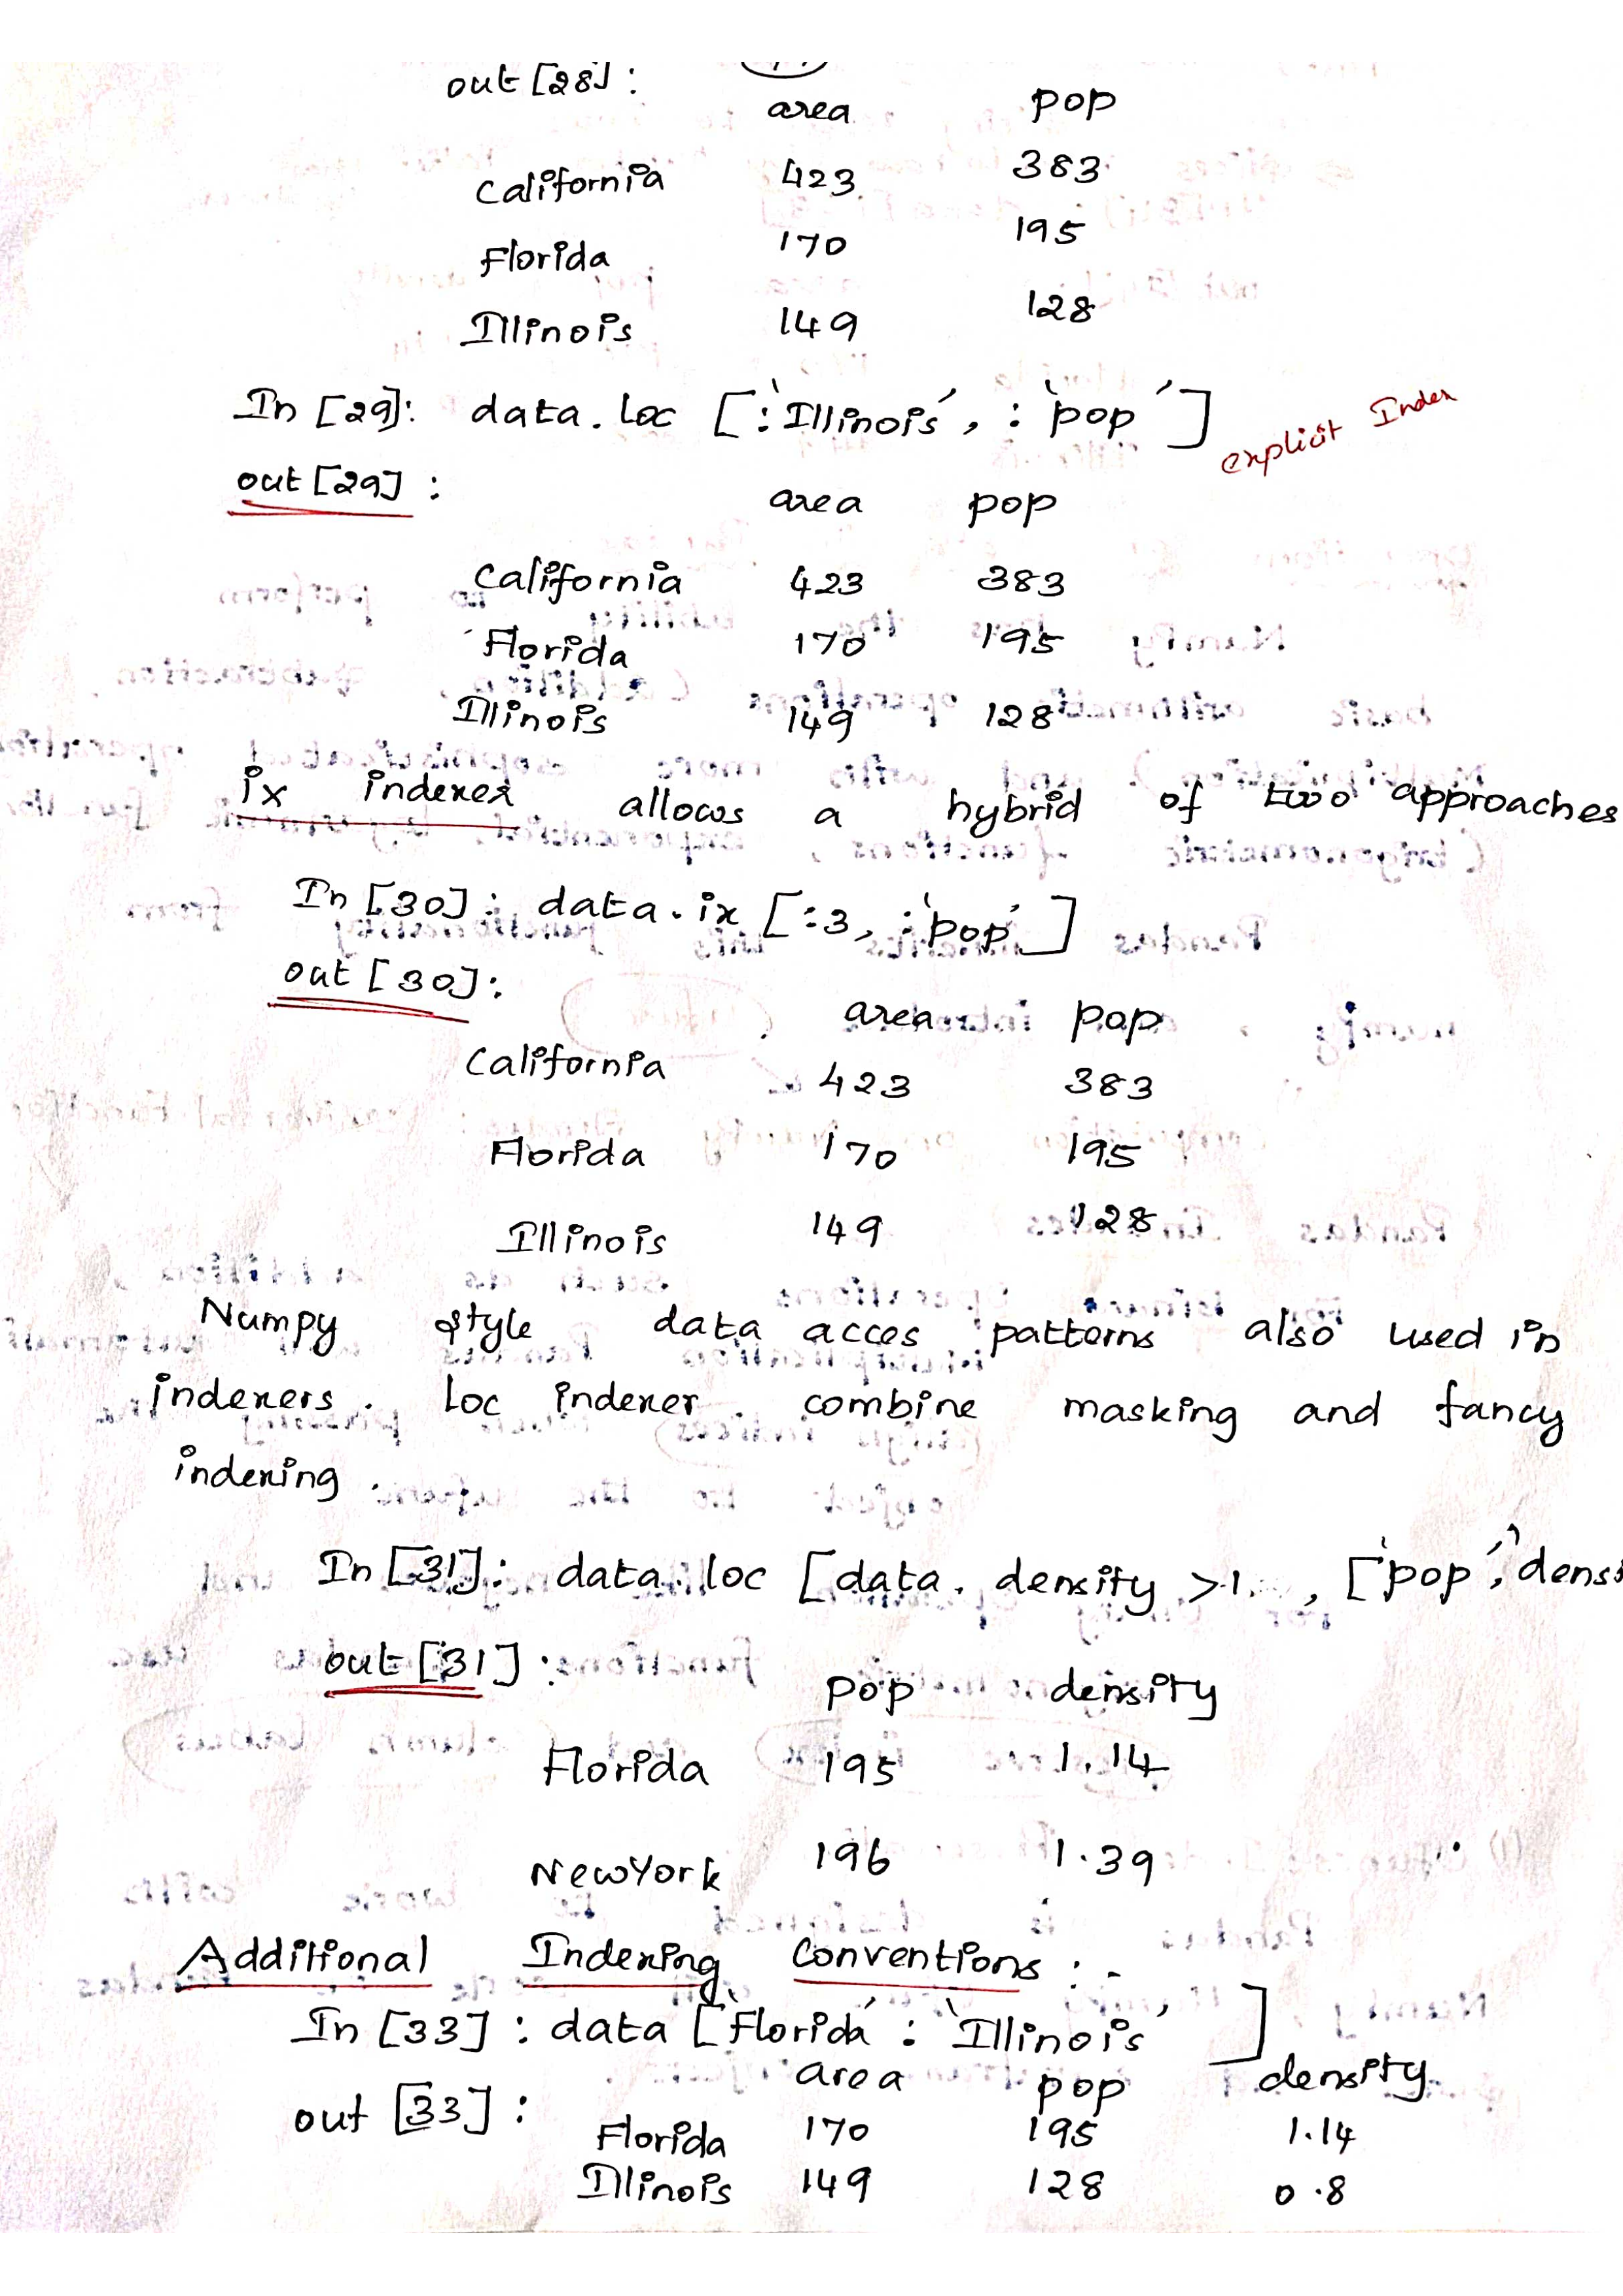 out [28]:
area pop
California 423 383
Florida 170 195
Illinois 149 128
In [29]: data.loc [:'Illinois', : 'pop'] explicit Index
out [29] :
area pop
California 423 383
Florida 170 195
Illinois 149 128
ix indexer allows a hybrid of two approaches
In [30]: data.ix [:3, :'pop']
out [30]:
area pop
California 423 383
Florida 170 195
Illinois 149 128
Numpy style data acces patterns also used in
indexers. loc indexer combine masking and fancy
indexing.
In [31]: data.loc [data. density >1. , ['pop',
out [31]:
pop density
Florida 195 1.14
NewYork 196 1.39
Additional Indexing Conventions :-
In [33] : data ['Florida' : 'Illinois' ]
area pop density
out [33] :
Florida 170 195 1.14
Illinois 149 128 0.8